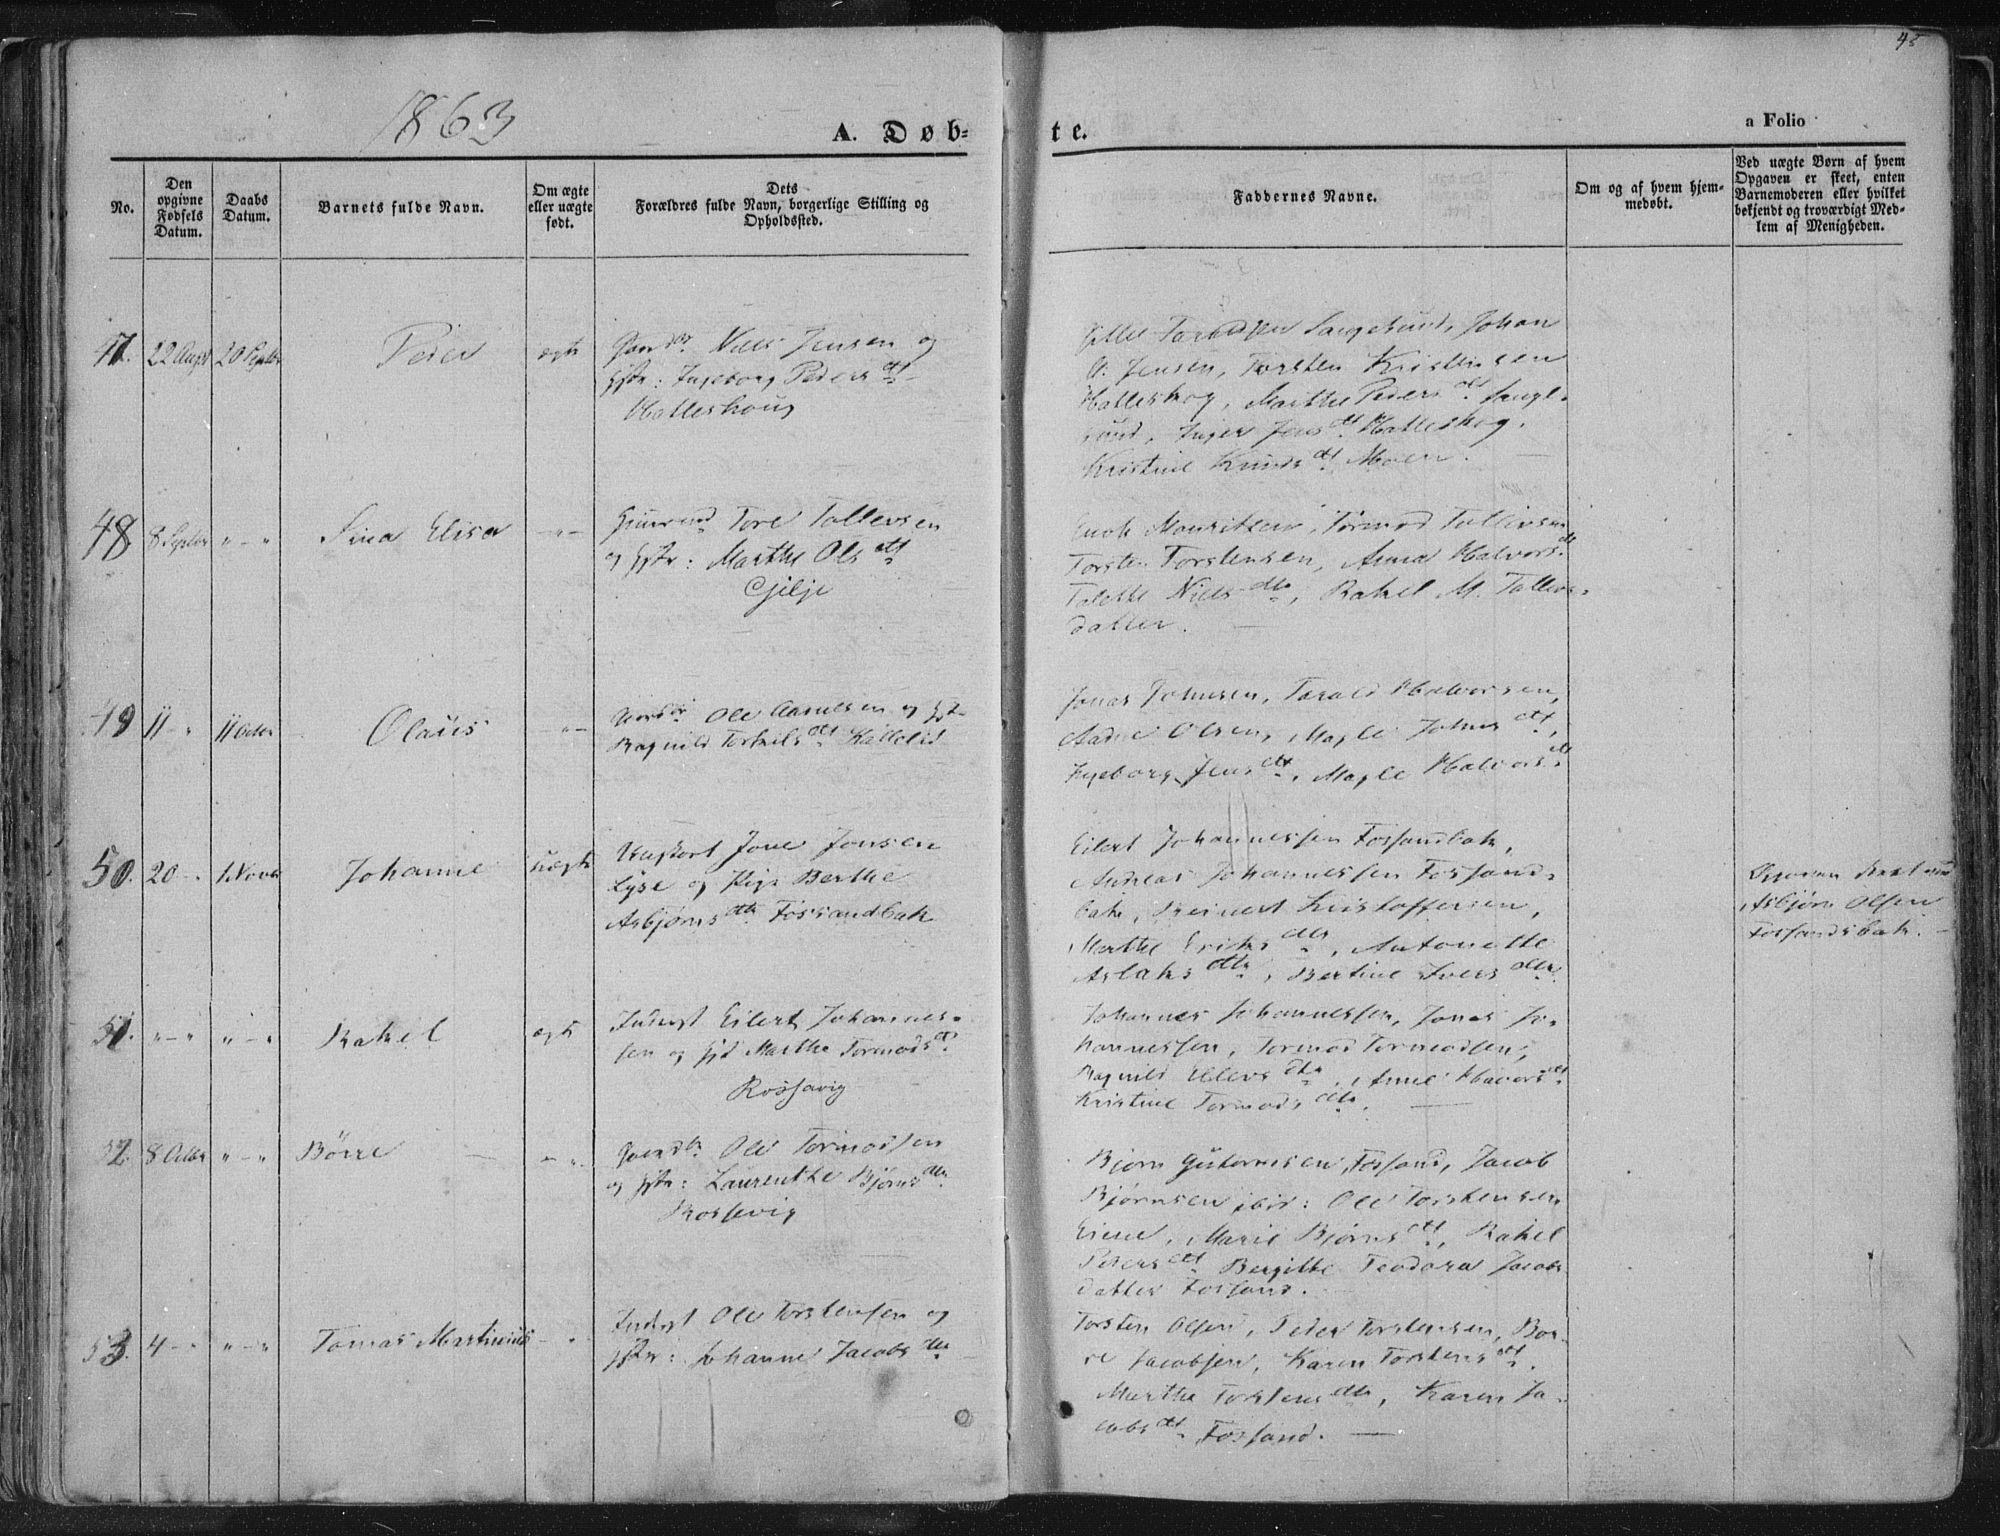 45
1863
A. Døb-
te.
a Folio
No.
Den
opgivne
Fødsels
Datum.
Daabs
Datum.
Barnets fulde Navn.
Om ægte
eller uægte
født.
Dets
Forældres fulde Navn, borgerlige Stilling og
Opholdssted.
Faddernes Navne.
Om og af hvem hjem-
medøbt.
Ved uægte Børn af hvem
Opgaven er skeet, enten
Barnemoderen eller hvilket
bekjendt og troværdigt Med-
lem af Menigheden.
47. 22 Augst 20 Septbr Peder ægte
Niels Jensen og
Hstr: Ingeborg Pedersdtt
Halleshoug
Johan
O. Jensen, Torsten Kristensen
Halleskog, Marthe Pedersdtt
sund, Inger Jensdtt Halleskog,
Kristine Knudsdtt Moen.
48 8 Septbr " - " Sina Elisa - " -
Tore Tollevsen
og Hstr: Marthe Olsdtt
Gjilje
Enok Mouritsen, Tormod Tollevsen
Torsten Torstensen, Anna Halvorsdtt
Nielsdtr, Rakel M. Tollevs-
datter. -
49 11 - " 11 Octbr Olaus - " -
Ole Aanensen og Hstr
Ragnild Torkelsdtt Kallelid
Jonas Johnsen, Tarald Halvorsen,
Aadne Olsen, Magle Johnsdtt,
Ingeborg Jensdtt, Magle Halvorsdtt
50. 20 - " 1 Novbr Johanne uægte
Ungkarl Jone Jonsen
Lyse og Pige Berthe
Asbjørnsdtr Fossandbak
Eilert Johannessen Fossandbak,
Andreas Johannessen Fossand-
bak, Reinert Kristoffersen,
Marthe Eriksdtr, Antonette
Aslaksdtr, Bertine Iversdtr
Asbjørn Olsen
Fossandsbak. -
51. " - " " - " Rakel ægte
Inderst Eilert Johannes-
sen og Hst Marthe Tormodsdtt
Rossavig
Johannes Johannessen, Jonas Jo-
hannessen, Tormod Tormodsen,
Ragnild Ellevsdtr, Anne Halvorsdtt
Kristine Tormodsdtr. -
52. 8 Octbr " - " Börre - - "
Ole Tormodsen
og Hstr: Laurentke Bjørnsdtr
Rossavig
Bjørn Guttormsen, Fossand, Jacob
Bjørnsen ibid: Ole Torstensen
Eiene, Marie Bjørnsdtt, Rakel
Pedersdtt Bergitte Teodora Jacobs
datter Fossand. -
53. 4 - " " - " Tomas Martinius - "
Inderst Ole Torstensen og
Hstr: Johanne Jacobsdtr
Torsten Olsen, Peder Torstensen, Bør-
re Jacobsen, Karen Torstensdtt.
Marthe Torstensdtr, Karen Ja-
cobsdtt Fossand. -